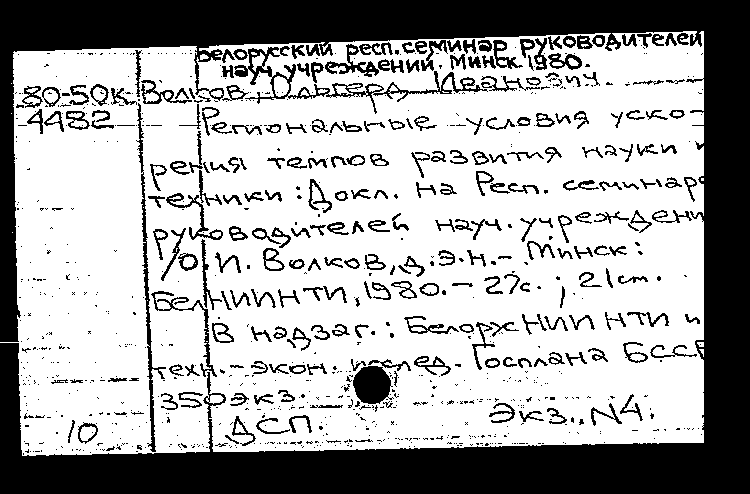 Белорусский респ. семинар руководителей
науч. учреждений. Минск 1980.
80-50к Волков, Ольгерд Иванович.
4482 Региональные условия уско-
рения темпов развития науки и
техники : Докл. на Респ. семинаре
руководителей науч. учреждени
/О.И. Волков, д.э.н. - Минск :
БелНИИНТИ, 1980. - 27с. ; 21см.
В надзаг. : БелорусНИИНТИ и
техн.-экон. исслед. Госплана БССР
350 экз.
10 ДСП. Экз. N4.